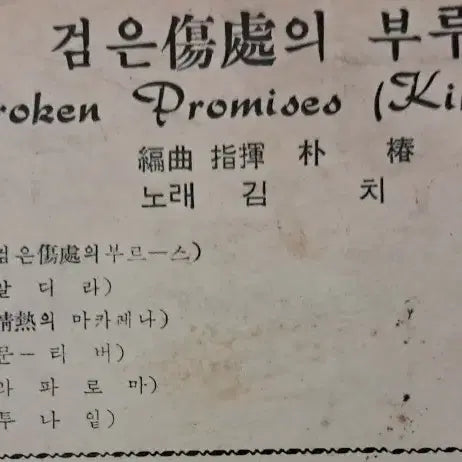 검은傷處의 부루
roken Promises (Ki
編曲 指揮 朴 椿
노래 김 치
검은傷處의부르ー스)
알 디 라)
情熱의 마카레나)
문ー리 버)
라 파 로 마)
투 나 잍)